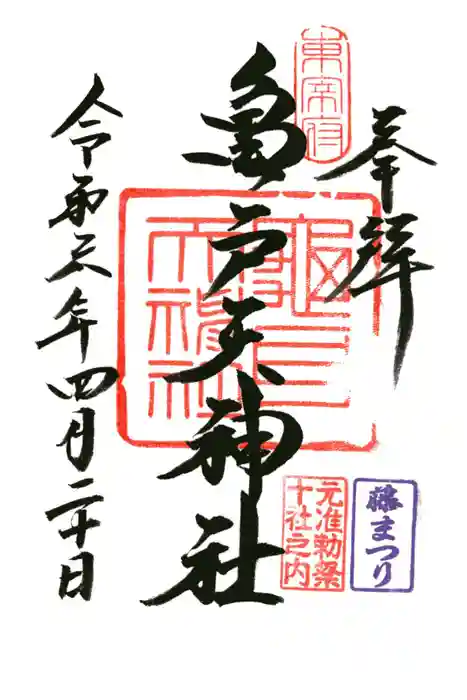 奉拝
東宰府
亀戸天神社
元准勅祭
十社之内
藤まつり
令和六年四月二十日